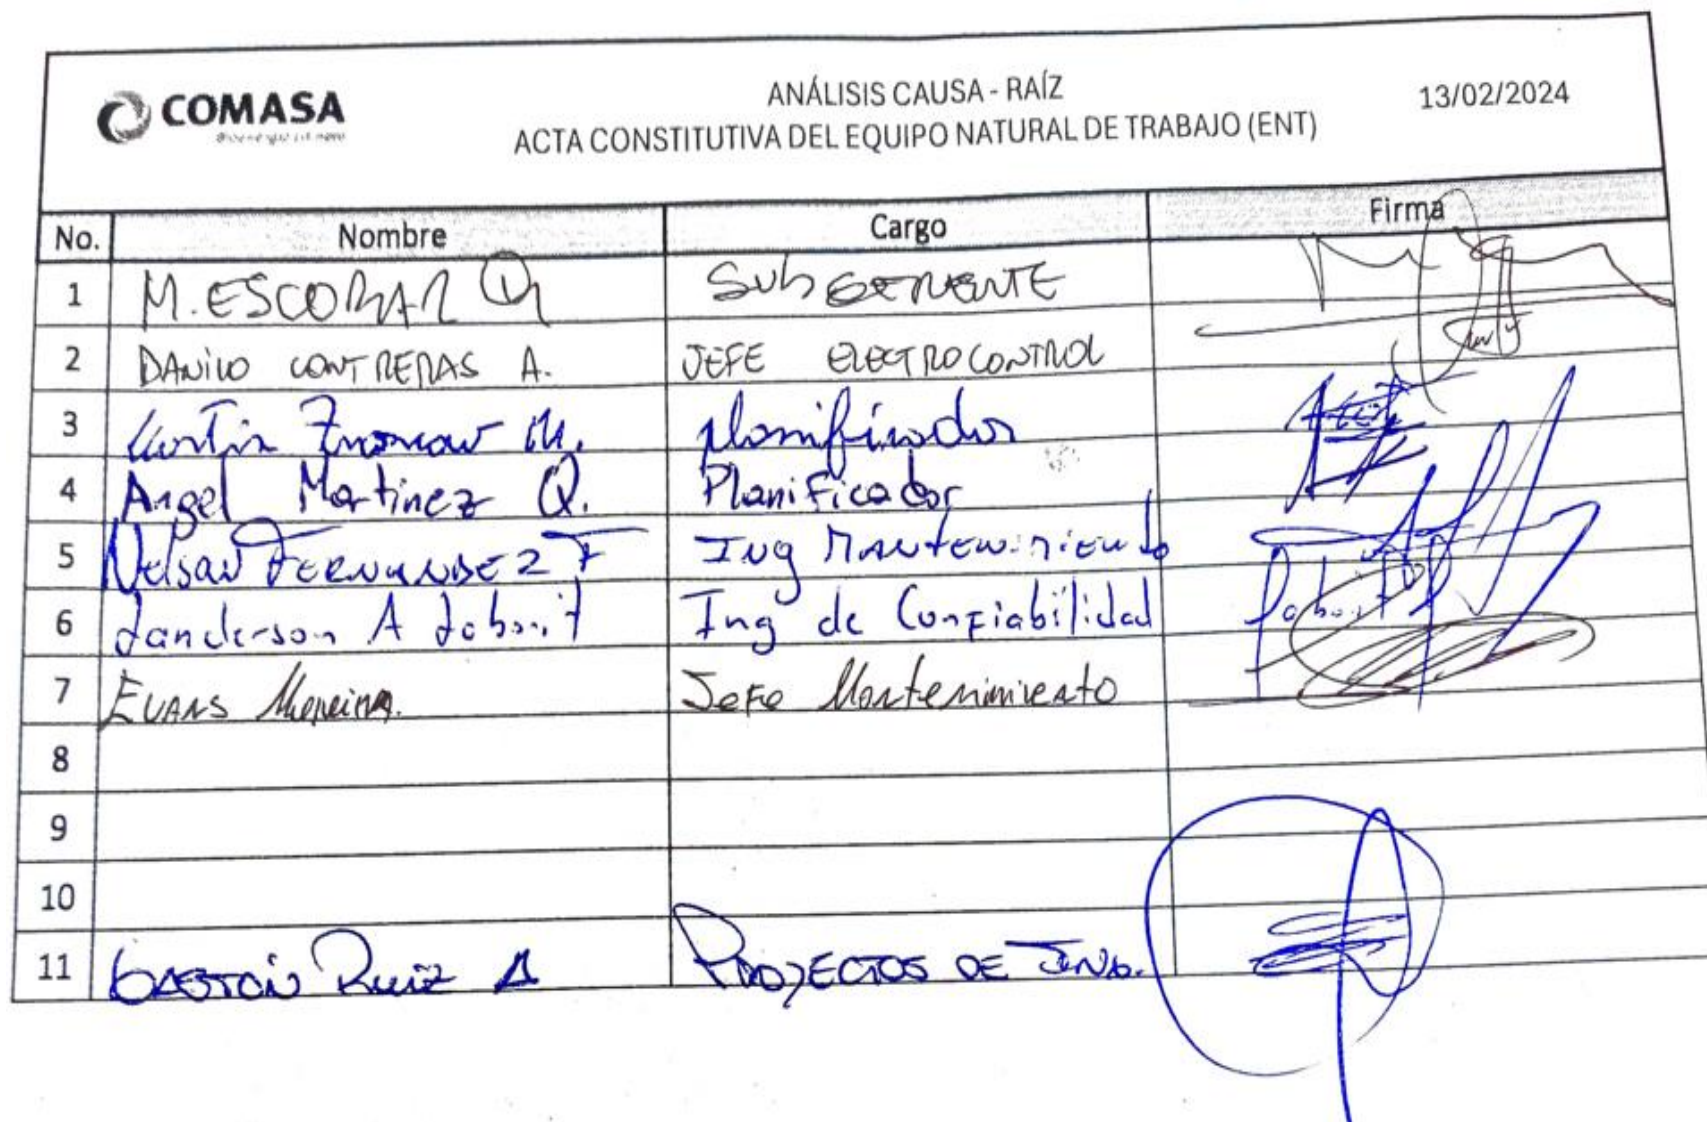 COMASA
ANÁLISIS CAUSA - RAÍZ
ACTA CONSTITUTIVA DEL EQUIPO NATURAL DE TRABAJO (ENT)
13/02/2024
No. Nombre Cargo Firma
1 M. ESCOBAR Q SubGERENTE
2 DANILO CONTRERAS A. JEFE ELECTROCONTROL
3 M. planificador
4 Angel Martinez Q. Planificador
5 Nelson FERNANDEZ F Ing MANTENIMIENTO
6 A Ing de Confiabilidad
7 EVANS Jefe Mantenimiento
8
9
10
11 GASTÓN Ruiz A PROYECTOS DE